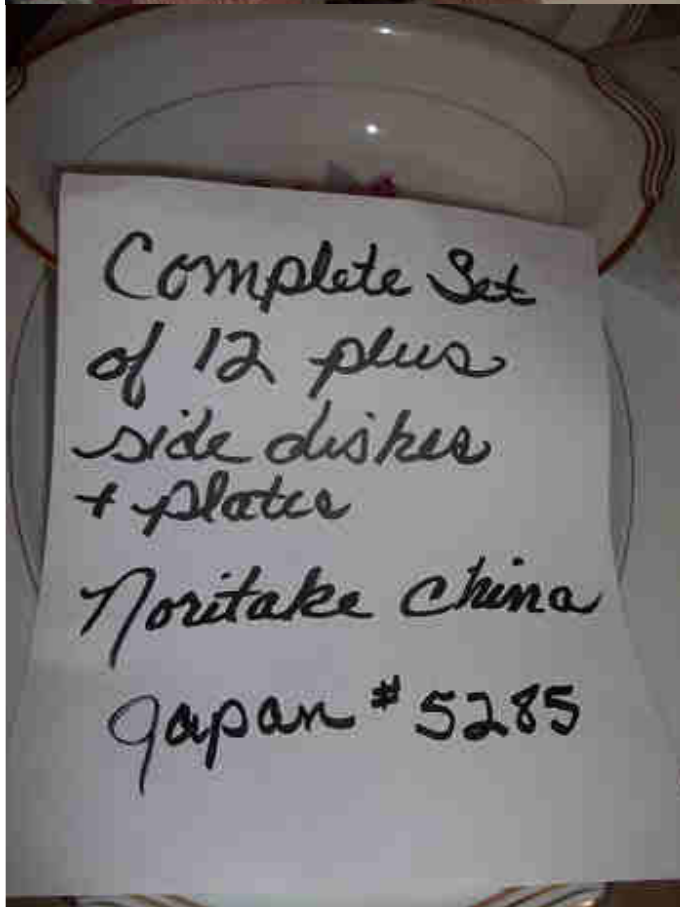 Complete Set
of 12 plus
side dishes
+ plates
Noritake China
Japan # 5285